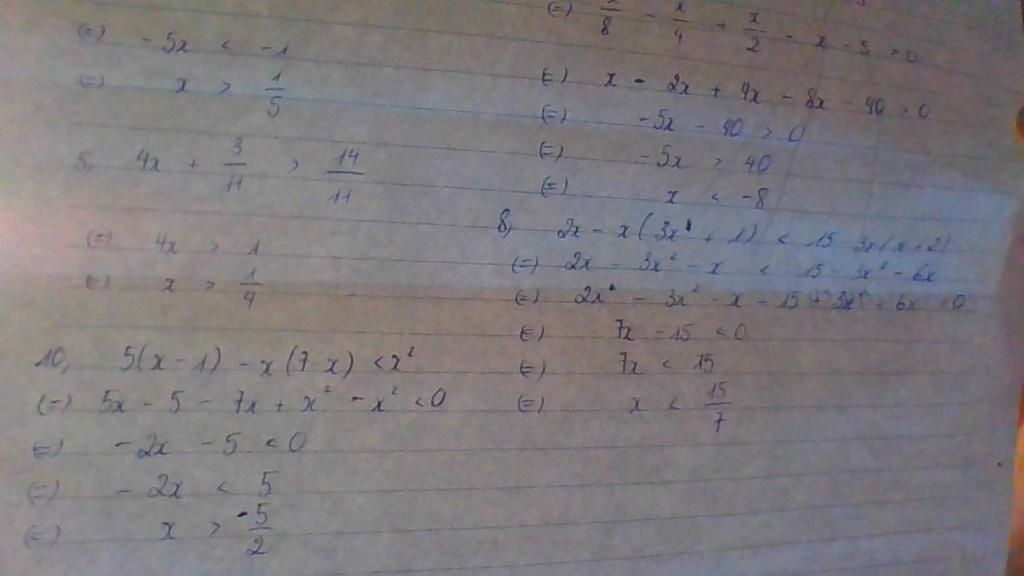 (=) -5x < -1
(=) x > 1/5
5, 4x + 3/11 > 14/11
(=) 4x > 1
(=) x > 1/4
10, 5(x-1) - x(7-x) < x²
(=) 5x - 5 - 7x + x² - x² < 0
(=) -2x - 5 < 0
(=) -2x < 5
(=) x > -5/2
(=) x/8 - x/4 + x/2 - x - 5 > 0
(=) x - 2x + 4x - 8x - 40 > 0
(=) -5x - 40 > 0
(=) -5x > 40
(=) x < -8
8, 2x - x(3x + 1) < 15 - 3x(x+2)
(=) 2x - 3x² - x < 15 - 3x² - 6x
(=) 2x - 3x² - x - 15 + 3x² + 6x < 0
(=) 7x - 15 < 0
(=) 7x < 15
(=) x < 15/7